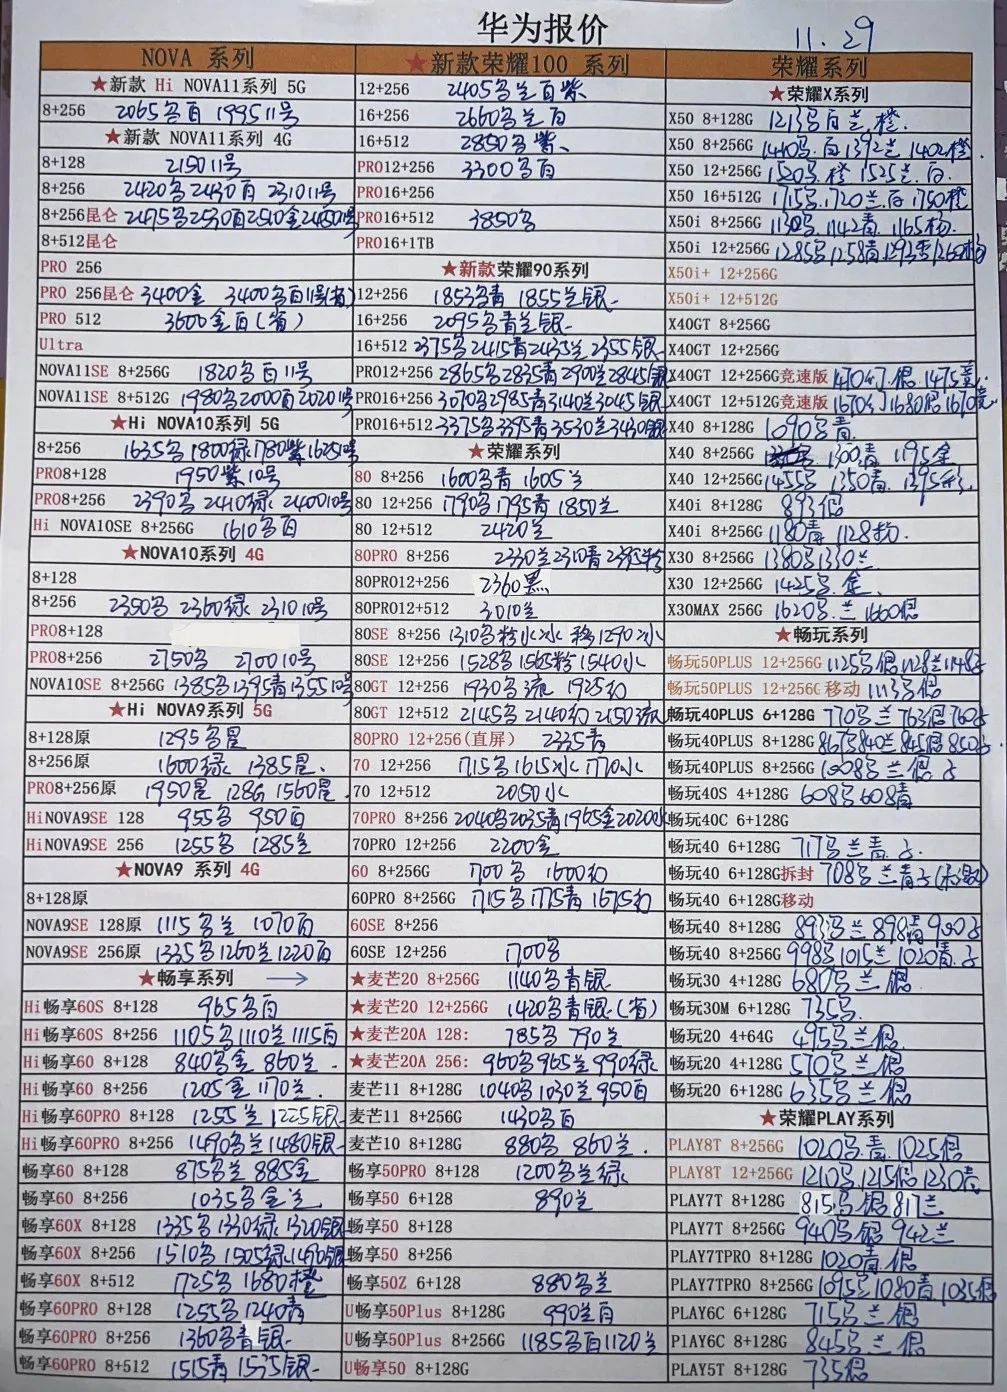 华为报价
11.29
NOVA 系列
★新款 Hi NOVA11系列 5G
8+256 2065多百 1995 11号
★新款 NOVA11系列 4G
8+128 2150 11号
8+256 2420多 2430百 2310 11号
8+256昆仑 2495多 2530百 2510金
8+512昆仑
PRO 256
PRO 256昆仑 3400金 3400多百
PRO 512 3600金百(省)
Ultra
NOVA11SE 8+256G 1820多百 11号
NOVA11SE 8+512G 1980多 2000百 2020 11号
★Hi NOVA10系列 5G
8+256 1635多 1800绿 1780紫 1625 10号
PRO8+128 1950紫 10号
PRO8+256 2390多 2410绿 2400 10号
Hi NOVA10SE 8+256G 1610多百
★NOVA10系列 4G
8+128
8+256 2350多 2360绿 2310 10号
PRO8+128
PRO8+256 2750多 2700 10号
NOVA10SE 8+256G 1385多 1395青 1355 10号
★Hi NOVA9系列 5G
8+128原 1295多星
8+256原 1600绿 1385星.
PRO8+256原 1950星 128G 1560星
HiNOVA9SE 128 955多 950百
HiNOVA9SE 256 1255多 1285兰
★NOVA9 系列 4G
8+128原
NOVA9SE 128原 1115多兰 1070百
NOVA9SE 256原 1335多 1260兰 1220百
★畅享系列 →
Hi畅享60S 8+128 965多百
Hi畅享60S 8+256 1105多 1110兰 1115百
Hi畅享60 8+128 840多金 860兰.
Hi畅享60 8+256 1205金 1170兰
Hi畅享60PRO 8+128 1255兰 1225银
Hi畅享60PRO 8+256 1490多兰 1480银
畅享60 8+128 875多兰 885金
畅享60 8+256 1035多金兰
畅享60X 8+128 1335多 1330绿 1320银
畅享60X 8+256 1510多 1505绿 1490银
畅享60X 8+512 1725多 1680橙
畅享60PRO 8+128 1255多 1240青
畅享60PRO 8+256 1360多青银
畅享60PRO 8+512 1515青 1535银
★新款荣耀100 系列
12+256 2405多兰百紫
16+256 2660多兰百
16+512 2850多紫
PRO12+256 3300多百
PRO16+256
PRO16+512 3850多
PRO16+1TB
★新款荣耀90系列
12+256 1853多青 1855兰银
16+256 2095多青兰银
16+512 2375多 2415青 2435兰 2355银
PRO12+256 2865多 2835青 2900兰 2845银
PRO16+256 3070多 2985青 3140兰 3045银
PRO16+512 3375多 3395青 3530兰 3430银
★荣耀系列
80 8+256 1600多青 1605兰
80 12+256 1790多 1795青 1850兰
80 12+512 2420兰
80PRO 8+256 2330兰 2310青
80PRO12+256 2360黑
80PRO12+512 3010兰
80SE 8+256 1310多粉水冰 移1290冰
80SE 12+256 1528多 1565粉 1540水
80GT 12+256 1930多流 1925幻
80GT 12+512 2145多 2140幻 2150流
80PRO 12+256(直屏) 2335青
70 12+256 1715多 1615冰 1770水
70 12+512 2050水
70PRO 8+256 2040多 2035青 1965金 2020水
70PRO 12+256 2200金
60 8+256G 1700多 1600幻
60PRO 8+256G 1715多 1775青 1675幻
60SE 8+256
60SE 12+256 1700多
★麦芒20 8+256G 1140多青银
★麦芒20 12+256G 1420多青银(省)
★麦芒20A 128: 785多 790兰
★麦芒20A 256: 960多 965兰 990绿
麦芒11 8+128G 1040多 1030兰 950百
麦芒11 8+256G 1430多百
麦芒10 8+128G 880多 860兰.
畅享50PRO 8+128 1200多兰绿
畅享50 6+128 890兰
畅享50 8+128
畅享50 8+256
畅享50Z 6+128 880多兰
U畅享50Plus 8+128G 990兰百
U畅享50Plus 8+256G 1185多百 1120兰
U畅享50 8+128G
荣耀系列
★荣耀X系列
X50 8+128G 1213多百兰.橙.
X50 8+256G 1410多.百 1392兰 1402橙
X50 12+256G 1520多.橙 1525兰.百
X50 16+512G 1715多.1720兰.百 1750橙
X50i 8+256G 1130多.1142青.1165杨.
X50i 12+256G 1285多 1258青
X50i+ 12+256G
X50i+ 12+512G
X40GT 8+256G
X40GT 12+256G
X40GT 12+256G竞速版 1470幻.银 1475竞
X40GT 12+512G竞速版 1670幻 1680银 1670竞
X40 8+128G 1090多青
X40 8+256G 1300青 1195金
X40 12+256G 1455多 1350青.
X40i 8+128G 893银
X40i 8+256G 1180青 1128杨.
X30 8+256G 1380多 1330兰
X30 12+256G 1425多.金.
X30MAX 256G 1620多.兰 1660银
★畅玩系列
畅玩50PLUS 12+256G 1125多银 1128兰
畅玩50PLUS 12+256G 移动 1113多银
畅玩40PLUS 6+128G 770多兰 763银 760子
畅玩40PLUS 8+128G 867多 840兰 845银 850子.
畅玩40PLUS 8+256G 1008多兰银子
畅玩40S 4+128G 608多 608青
畅玩40C 6+128G
畅玩40 6+128G 717多兰青.子
畅玩40 6+128G拆封 708多兰青子
畅玩40 6+128G移动
畅玩40 8+128G 893多兰 898青 900子
畅玩40 8+256G 998多 1015兰 1020青.子
畅玩30 4+128G 680多兰银
畅玩30M 6+128G 735多.
畅玩20 4+64G 495多兰银
畅玩20 4+128G 570多兰银
畅玩20 6+128G 635多兰银
★荣耀PLAY系列
PLAY8T 8+256G 1020多.青.1025银
PLAY8T 12+256G 1210多.1215银 1230青
PLAY7T 8+128G 815多银 817兰
PLAY7T 8+256G 940多银 942兰
PLAY7TPRO 8+128G 1020青.银
PLAY7TPRO 8+256G 1095多 1080青 1035银
PLAY6C 6+128G 715多兰银
PlAY6C 8+128G 845多兰银
PLAY5T 8+128G 735银